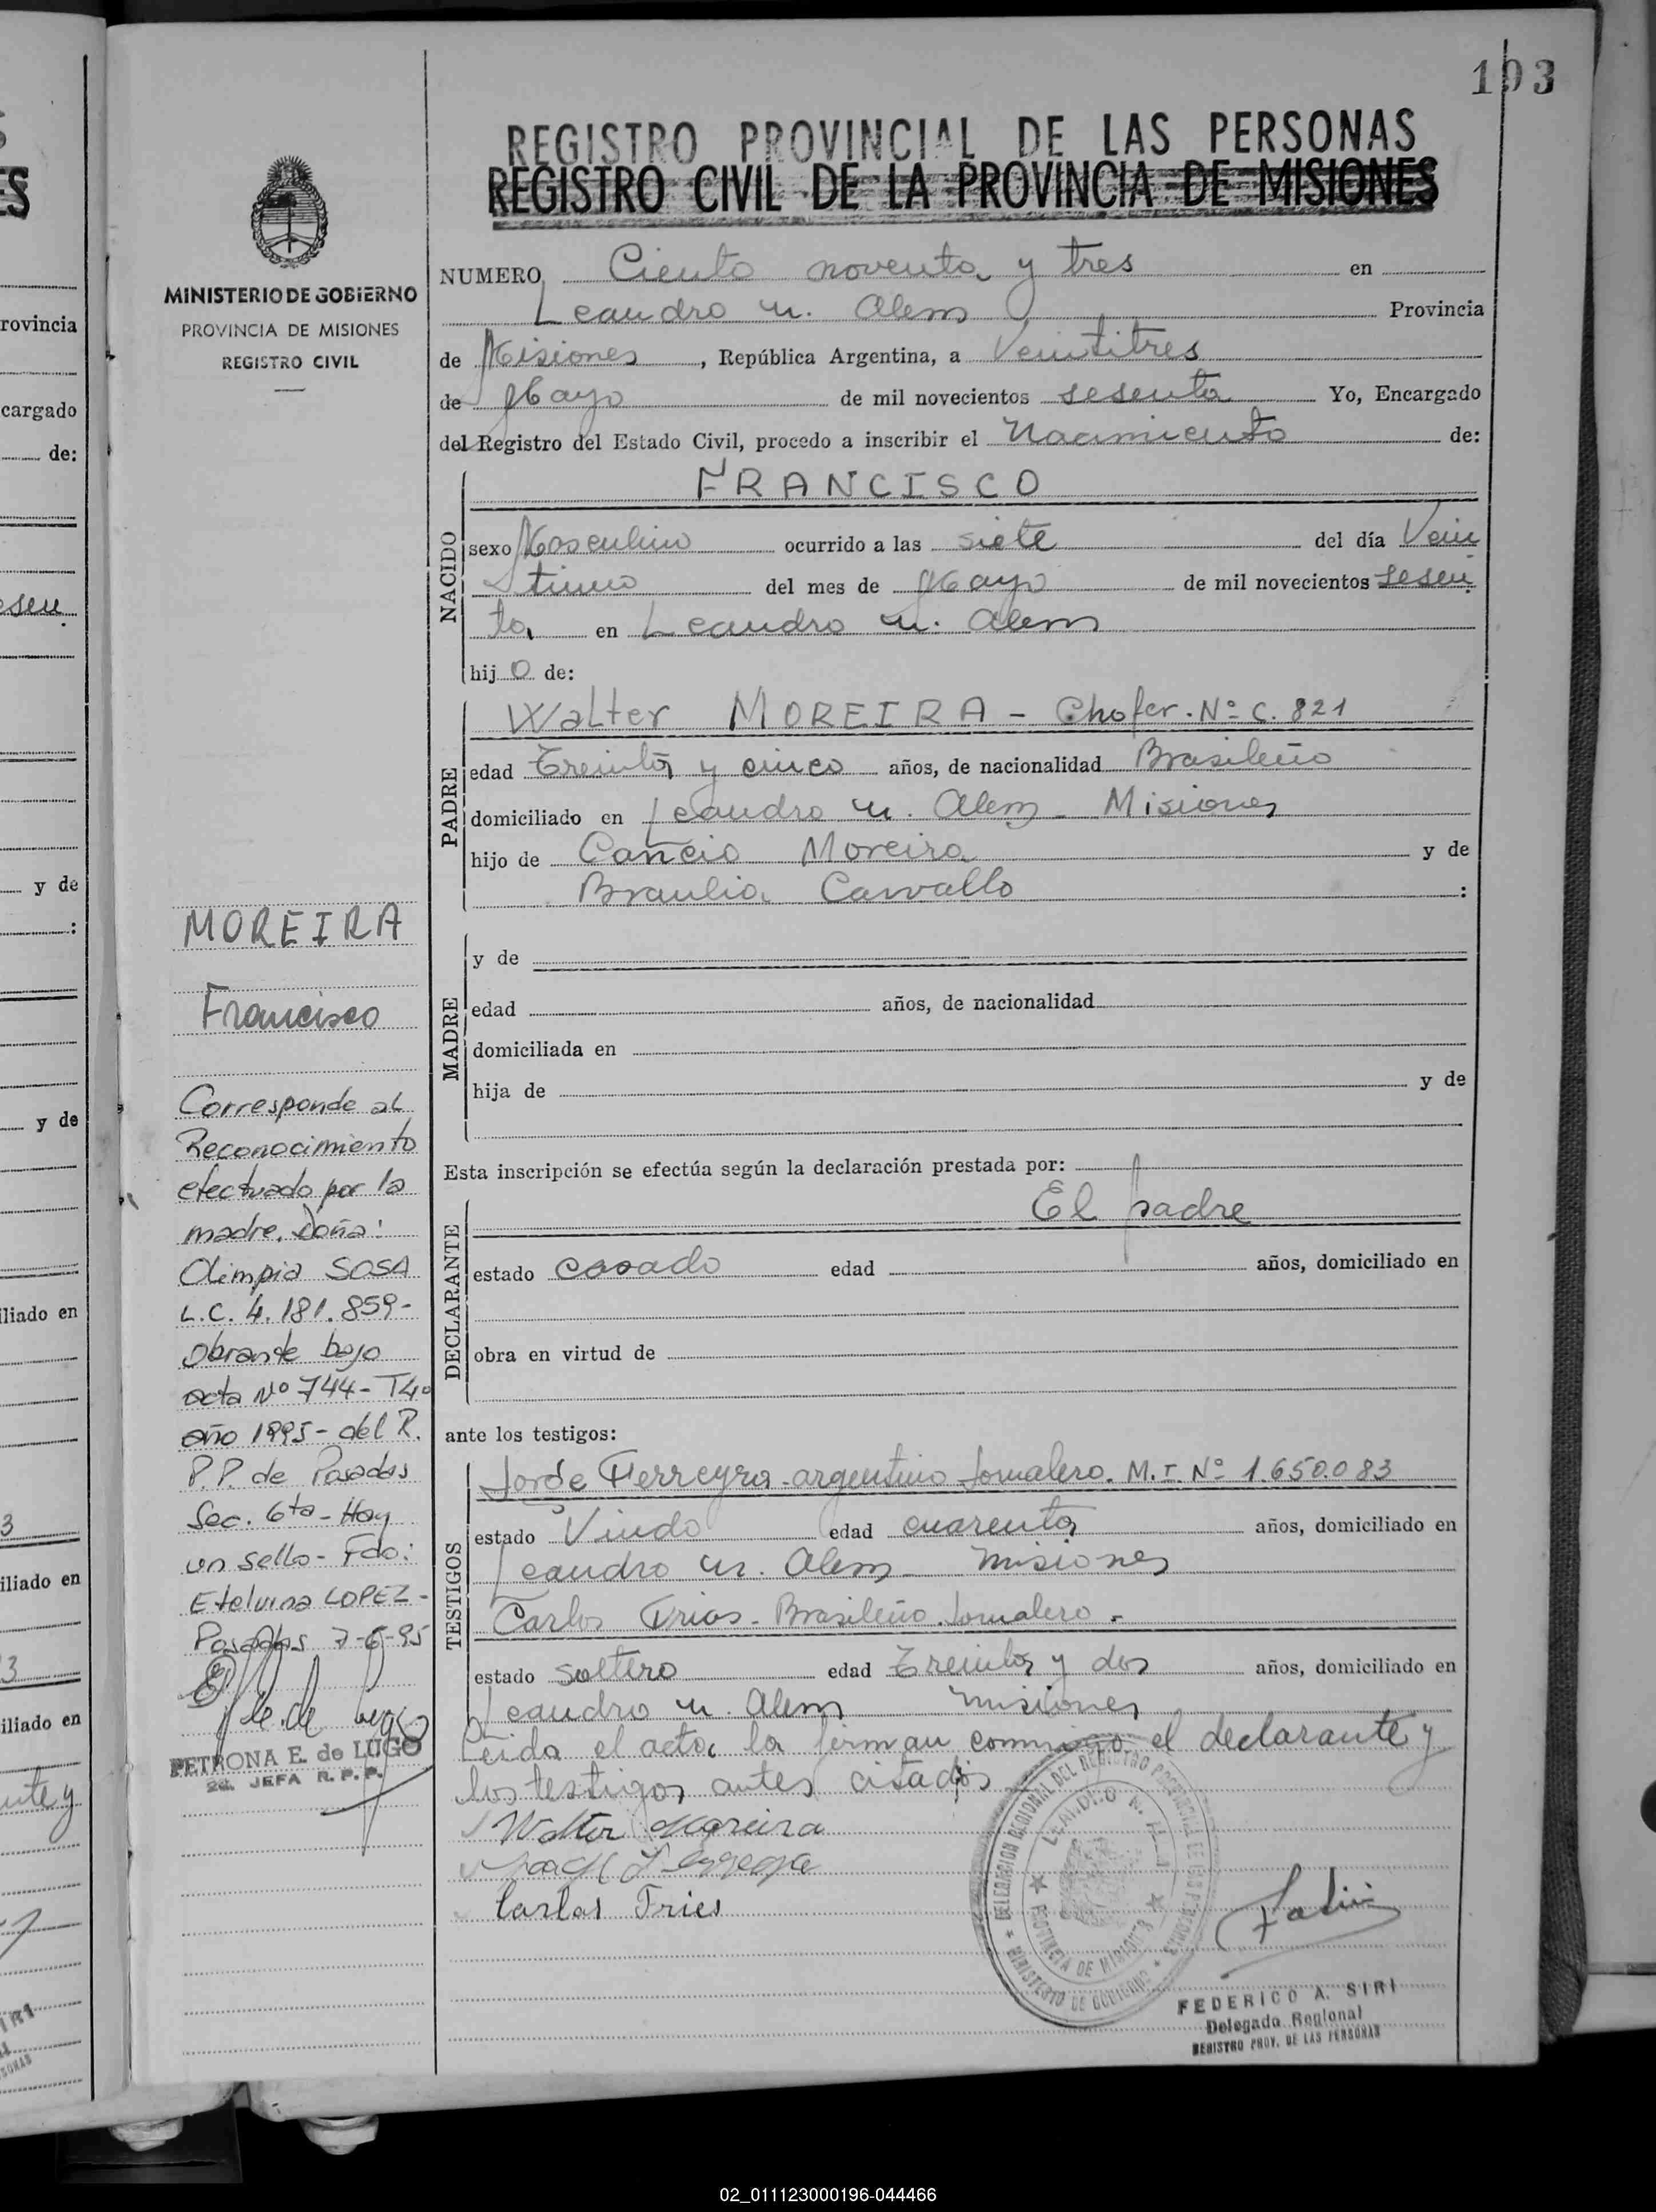 193
REGISTRO PROVINCIAL DE LAS PERSONAS
REGISTRO CIVIL DE LA PROVINCIA DE MISIONES
MINISTERIO DE GOBIERNO
PROVINCIA DE MISIONES
REGISTRO CIVIL
NUMERO Ciento noventa y tres en
Leandro N. Alem Provincia
de Misiones, República Argentina, a Veintitres
de Mayo de mil novecientos sesenta Yo, Encargado
del Registro del Estado Civil, procedo a inscribir el Nacimiento de:
NACIDO
FRANCISCO
sexo Masculino ocurrido a las siete del día Vein
tiuno del mes de Mayo de mil novecientos sesen
ta en Leandro N. Alem
hijo de:
PADRE
Walter MOREIRA - Chofer. Nº C. 821
edad Treinta y cinco años, de nacionalidad Brasileño
domiciliado en Leandro N. Alem - Misiones
hijo de Cancio Moreira y de
Braulia Carvallo :
MADRE
y de
edad años, de nacionalidad
domiciliada en
hija de y de
Esta inscripción se efectúa según la declaración prestada por:
DECLARANTE
El padre
estado casado edad años, domiciliado en
obra en virtud de
ante los testigos:
TESTIGOS
Jorge Ferreyra - argentino Jornalero. M.I. Nº 1.650.083
estado Viudo edad cuarenta años, domiciliado en
Leandro N. Alem - Misiones
Carlos Frias - Brasileño. Jornalero -
estado soltero edad Treinta y dos años, domiciliado en
Leandro N. Alem Misiones
Leida el acta, la firman conmigo el declarante y
los testigos antes citados
Walter Moreira
Carlos Fries
MOREIRA
Francisco
Corresponde al
Reconocimiento
efectuado por la
madre, Doña:
Olimpia SOSA
L.C. 4.181.859-
obrante bajo
acta Nº 744 - T4º
año 1995 - del R.
P.P. de Posadas
Sec. 6ta - Hay
un sello - Fdo:
Etelvina LOPEZ -
Posadas 7-6-95
PETRONA E. de LUGO
2da. JEFA R.P.P.
DELEGACION REGIONAL DEL REGISTRO PROVINCIAL DE LAS PERSONAS
MINISTERIO DE GOBIERNO
PROVINCIA DE MISIONES
FEDERICO A. SIRI
Delegado Regional
REGISTRO PROV. DE LAS PERSONAS
rovincia
cargado
de:
esen
y de
:
y de
iliado en
3
iliado en
3
iliado en
nte y
02_011123000196-044466